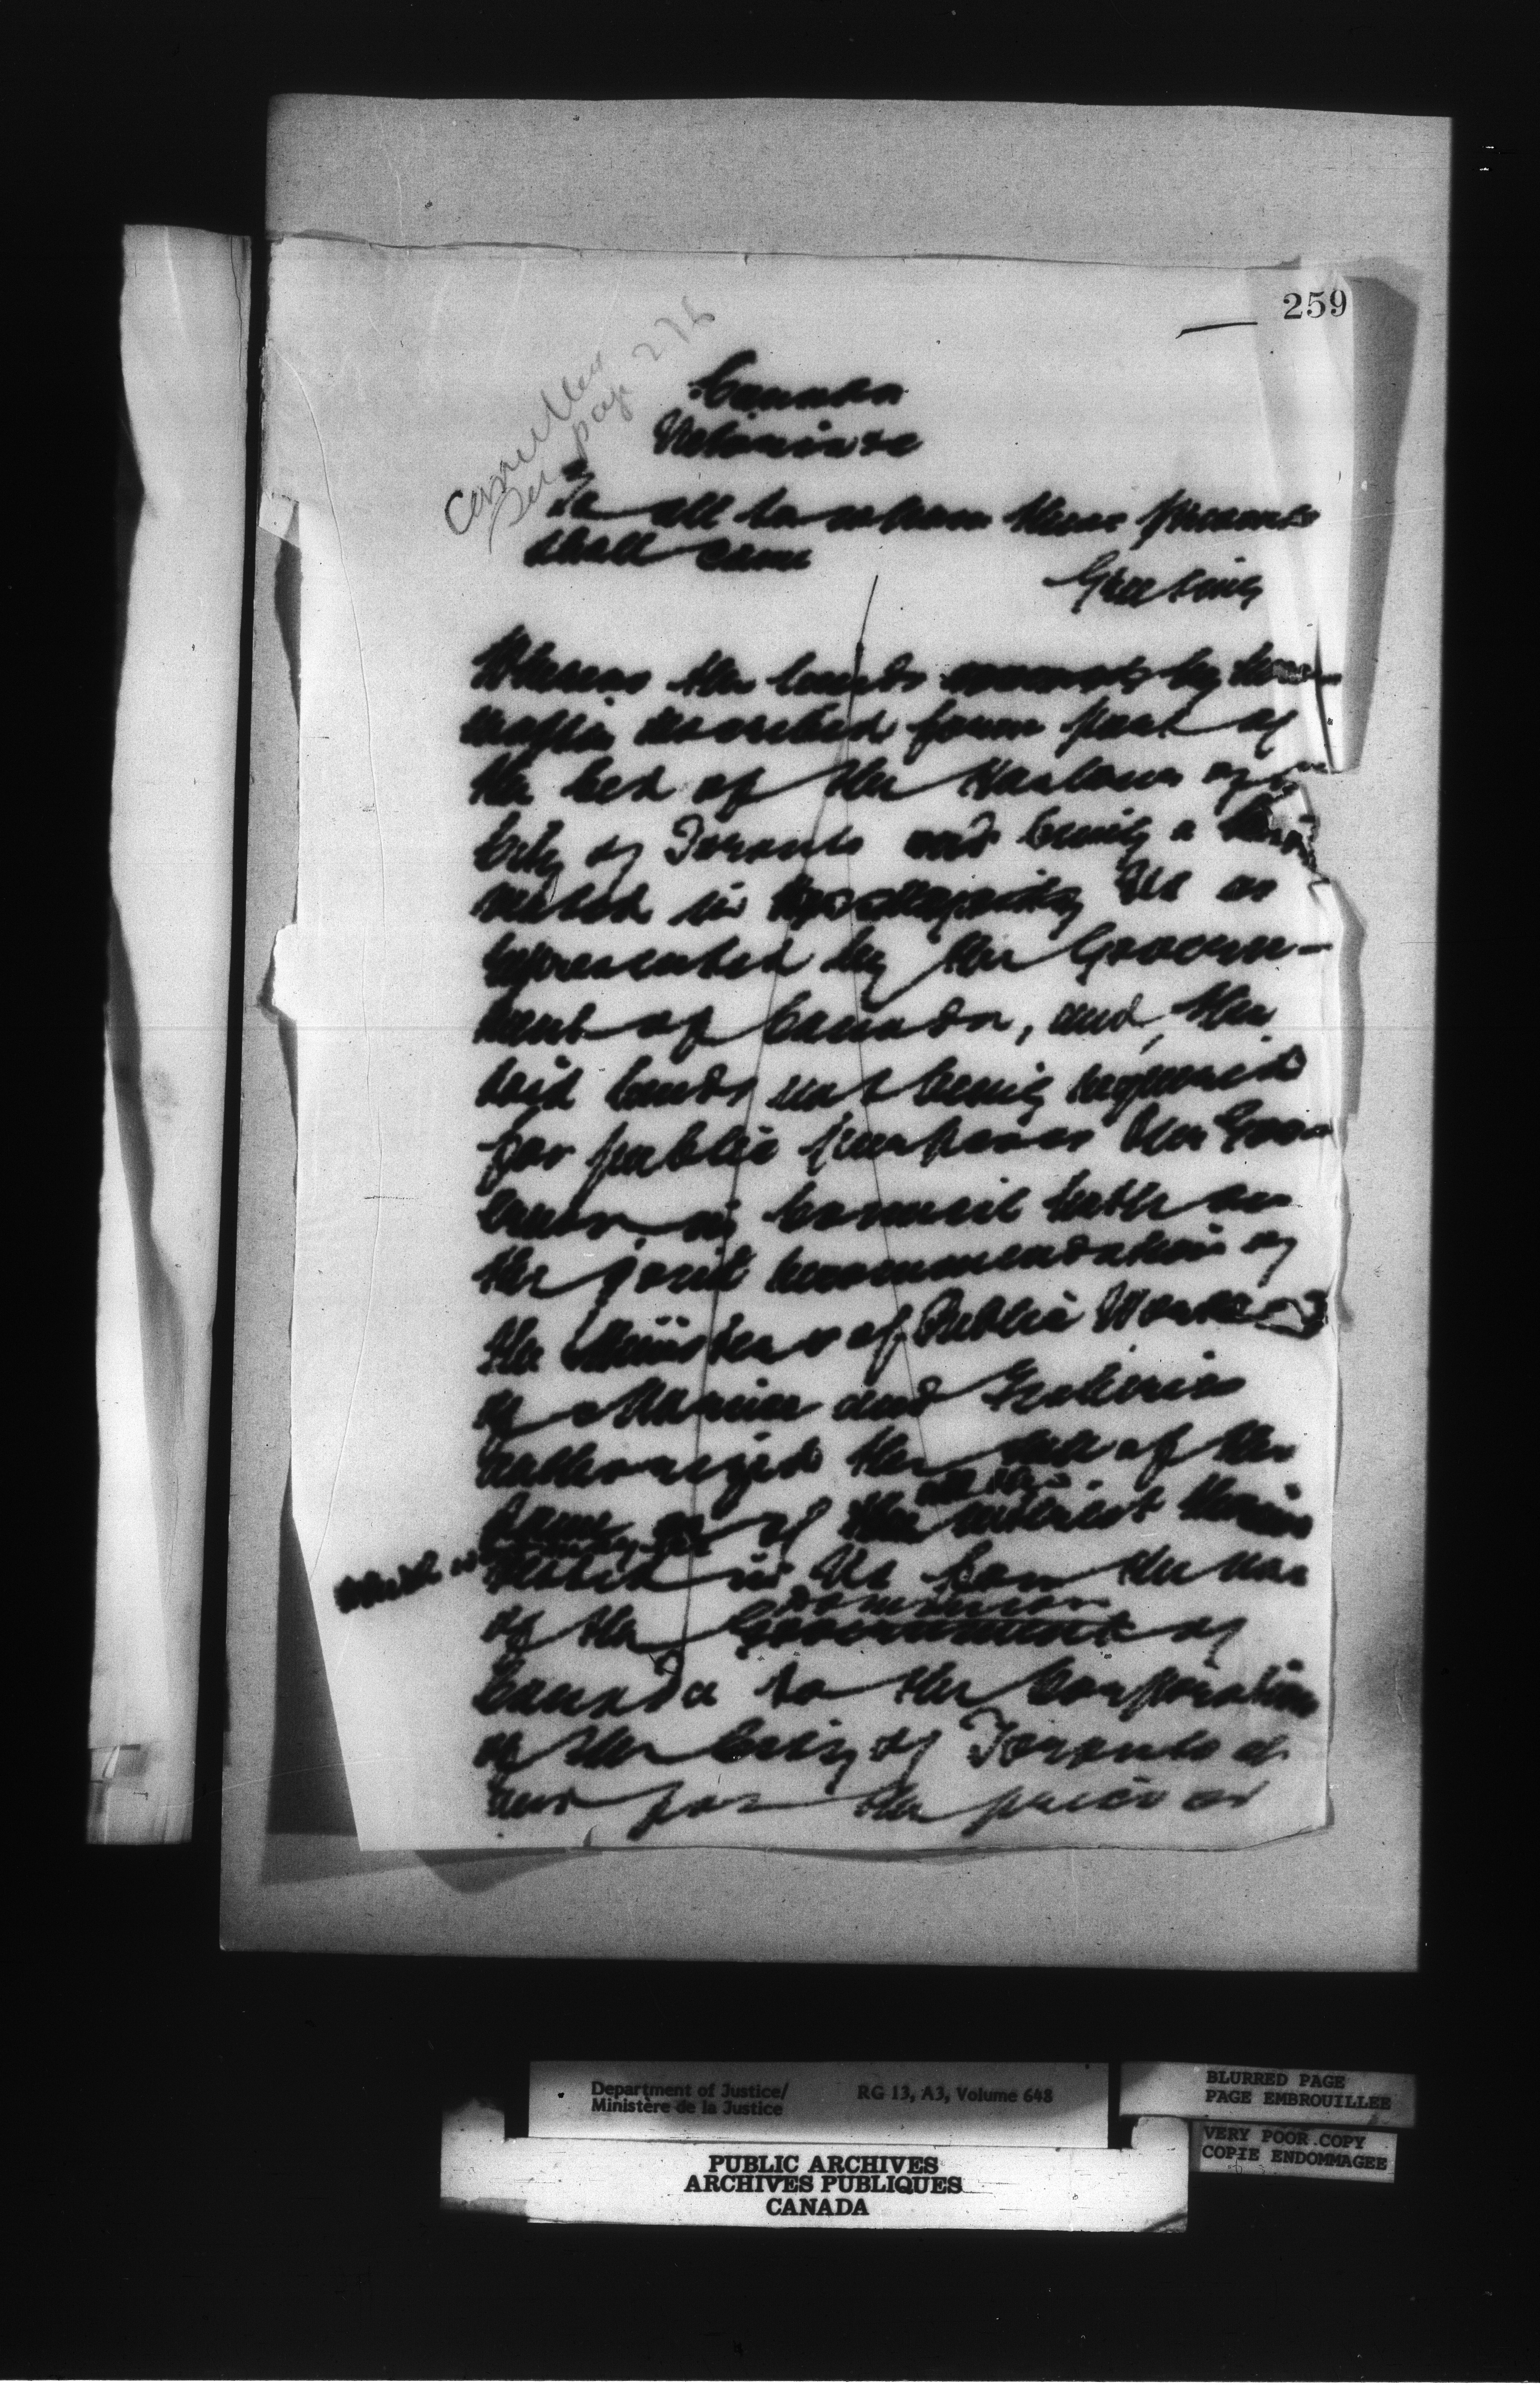 259
Cancelled
See page 276
Canada
To all to whom these presents
shall come
Greeting
Whereas the lands by here-
described form part of
the bed of the Harbour of
City of Toronto and being
vested in Us as
represented by the Govern-
ment of Canada, and, the
said lands not being required
for public purposes Our Gov-
ernor in Council hath on
the joint recommendation of
the Ministers of Public Works
of Marine and Fisheries
authorized the sale of the
same or of the interest therein
which
vested in Us for the use
Dominion
of the Government of
Canada to the Corporation
of the City of Toronto at
and for the price or
Department of Justice/
Ministère de la Justice
RG 13, A3, Volume 648
BLURRED PAGE
PAGE EMBROUILLEE
VERY POOR COPY
COPIE ENDOMMAGEE
PUBLIC ARCHIVES
ARCHIVES PUBLIQUES
CANADA